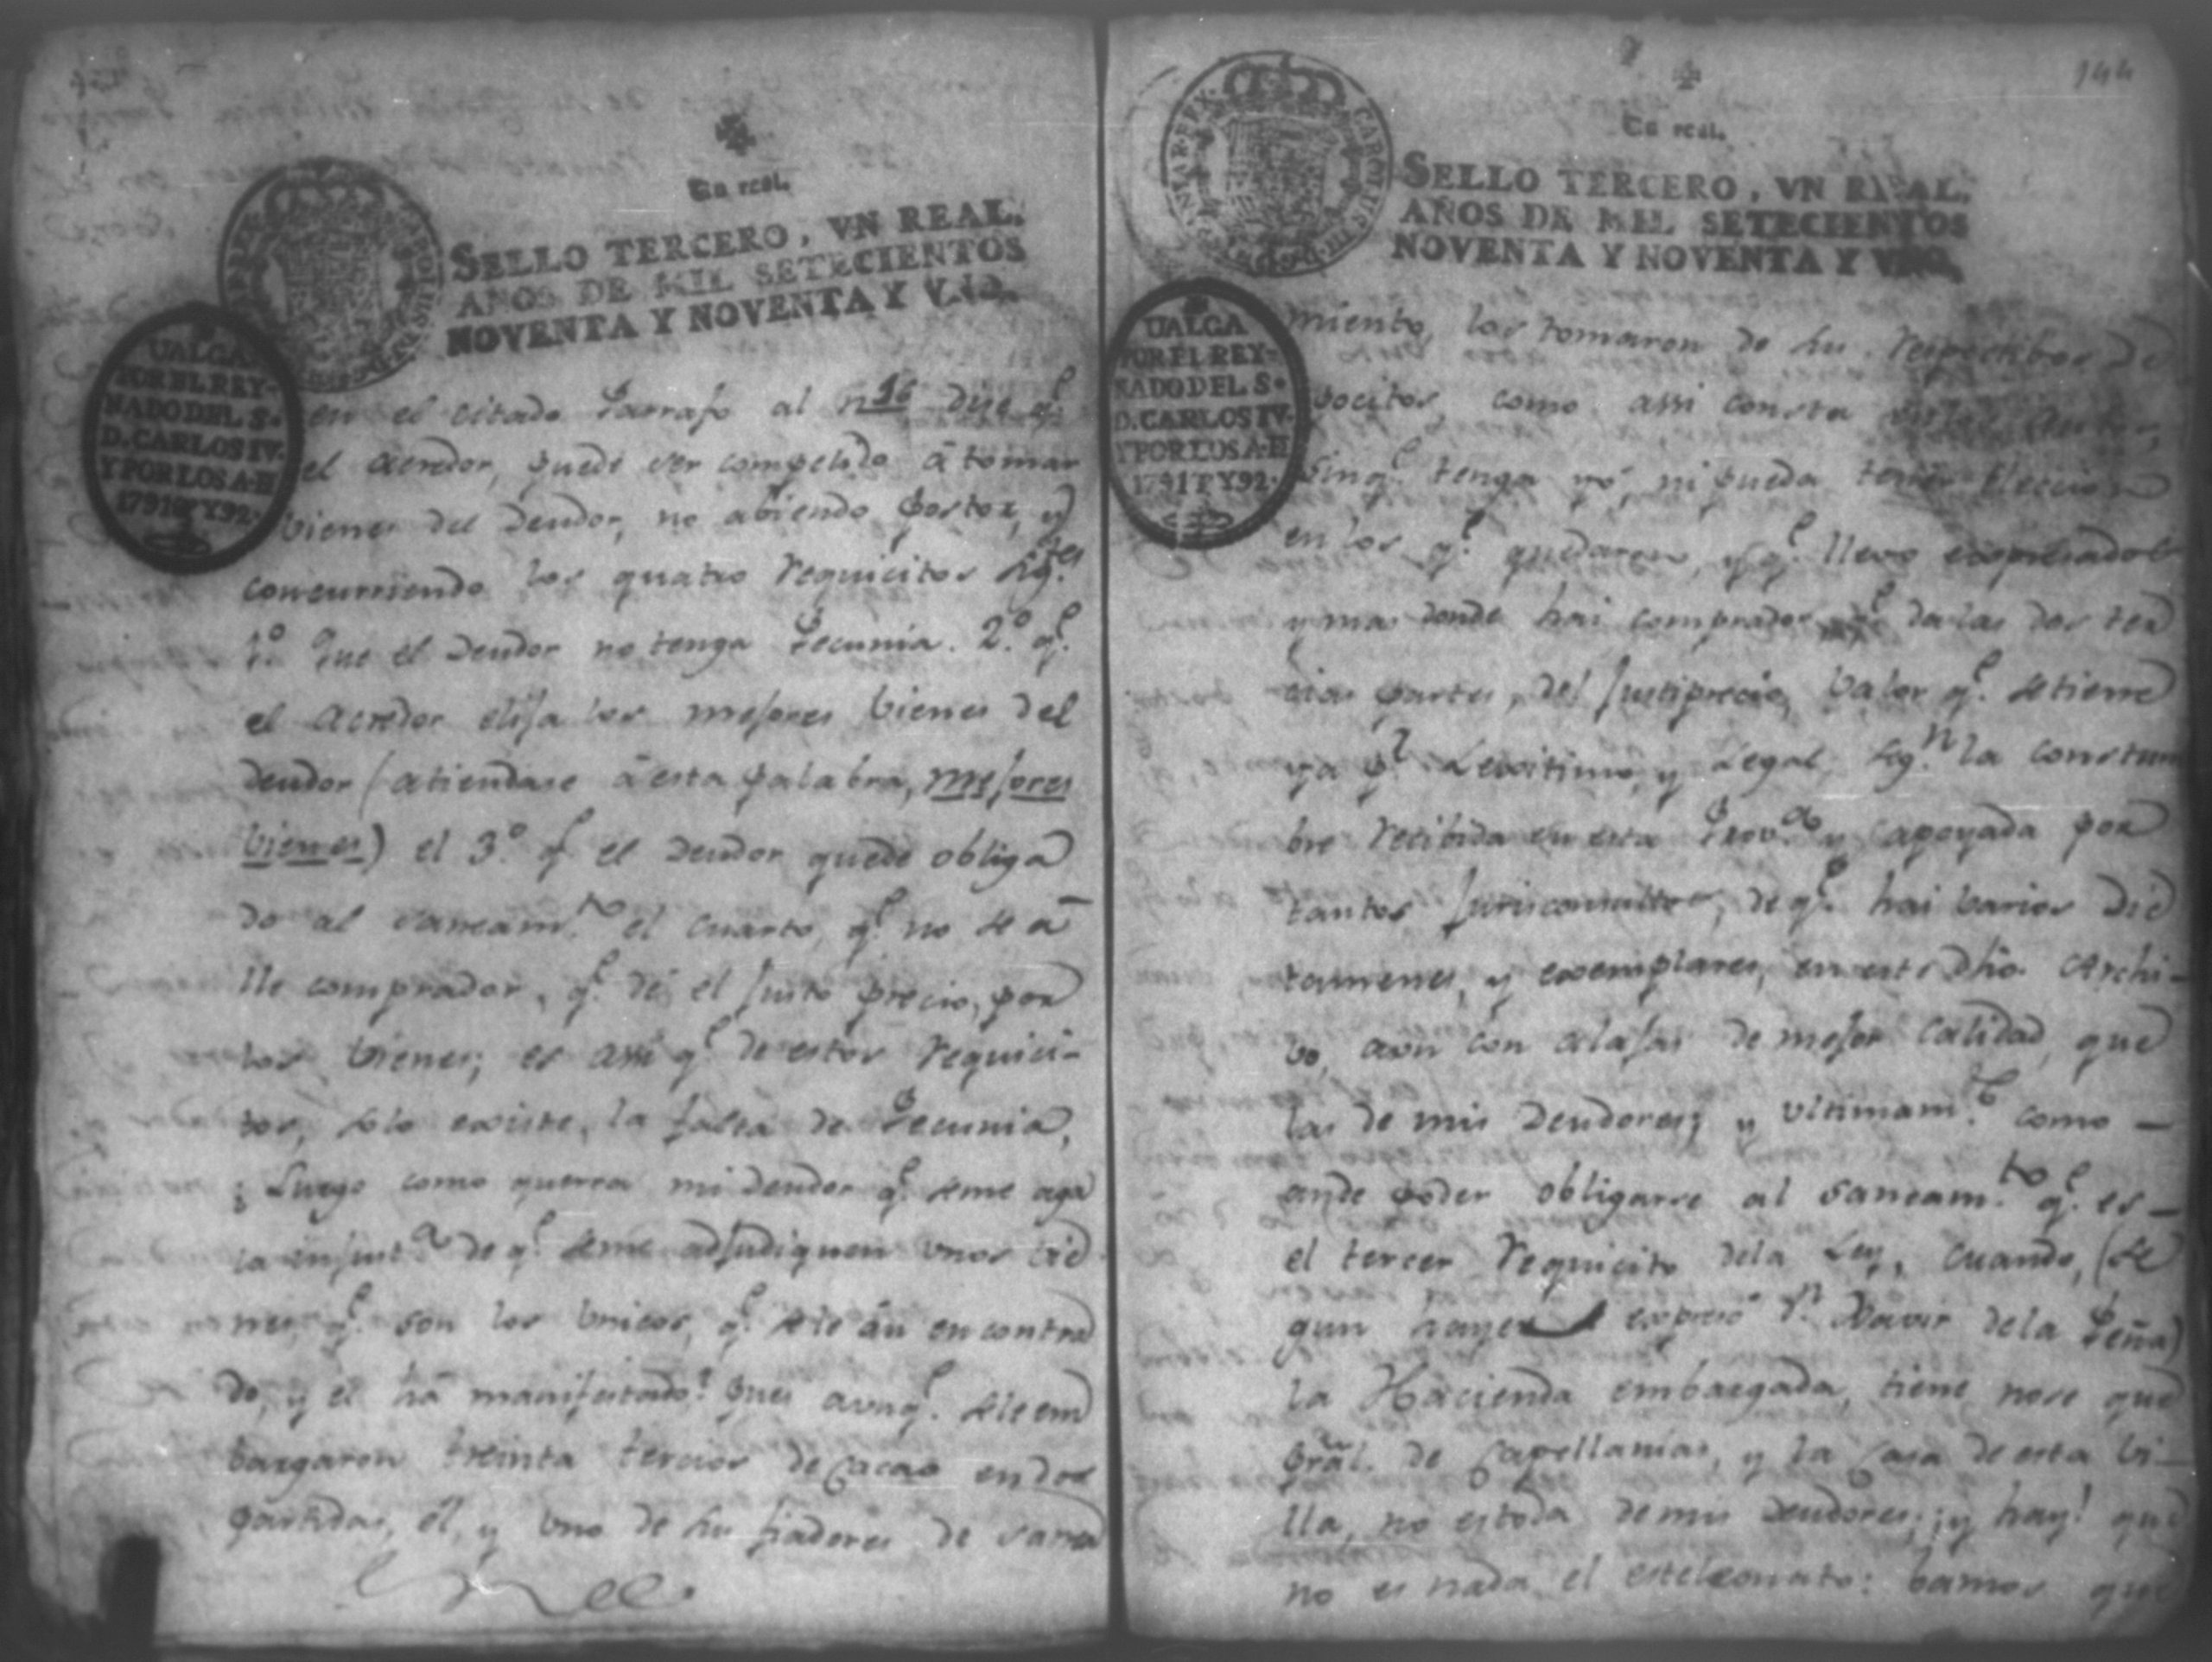 Un real.
SELLO TERCERO, VN REAL.
AÑOS DE MIL SETECIENTOS
NOVENTA Y NOVENTA Y VNO.
UALGA
POR EL REY-
NADO DEL S.
D. CARLOS IV.
Y POR LOS A.
1791 Y 92.
en el citado Parrafo al n.16 dice q.e
el acredor, puede ser compelido â tomar
bienes del deudor, no abiendo postor, y
concurriendo los quatro requicitos sig.tes
1.o Que el deudor no tenga Pecunia. 2.o q.e
el acredor elija los mejores bienes del
deudor (atiendase â esta palabra, mejores
bienes) el 3.o q.e el deudor quede obliga
do al saneam.to el cuarto, q.e no se â
lle comprador, q.e dé el justo precio, por
los bienes; es asi q.e de estos requici-
tos, solo existe, la falta de Pecunia,
¿ Luego como querra mi deudor q.e se me aga
la injust.a de q.e se me adjudiquen unos bie
nes, q.e son los unicos, q.e se le ân encontra
do, y el hâ manifestado? pues aunq.e se le em
bargaron treinta tercios de Cacao en dos
partidas, él, y uno de su fiadores de sanea
144
Un real.
SELLO TERCERO, VN REAL.
AÑOS DE MIL SETECIENTOS
NOVENTA Y NOVENTA Y VNO.
CAROLUS
UALGA
POR EL REY-
NADO DEL S.
D. CARLOS IV.
Y POR LOS A.
1791 Y 92.
miento, los tomaron de su respectibos de
pocitos, como asi consta
sin q.e tenga yo, ni pueda tener eleccion
en los q.e quedaron, y q.e llevo expresados
y mas donde hai comprador q.e da las dos ter
cias partes, del justiprecio, balor q.e se tiene
ya p.r Lexitimo, y Legal, seg.n la costum
bre recibida en esta Prov.a y apoyada por
tantos jurisconsultos, de q.e hai barios dic
tamenes, y exemplares, en este dho. Archi-
bo, aun con alajas de mejor calidad, que
las de mis deudores; y ultimam.te como -
ande poder obligarse al saneam.to q.e es -
el tercer requicito dela Ley, cuando, (se
gun expreso Xavier dela Peña)
la Hacienda embargada, tiene no se que
pral. de Capellanias, y la casa de esta bi-
lla, no es toda de mis deudores; ¡y hay! que
no es nada el estelionato: bamos que